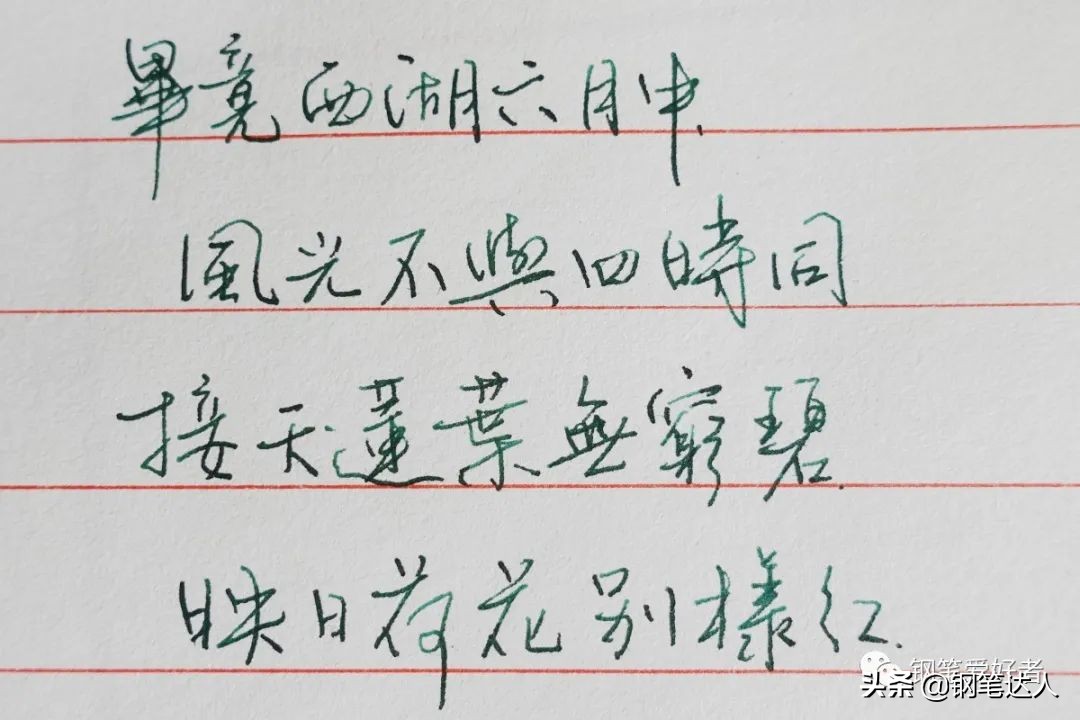 畢竟西湖六月中.
風光不與四時同
接天蓮葉無窮碧.
映日荷花别樣红.
钢笔爱好者
头条 @钢笔达人